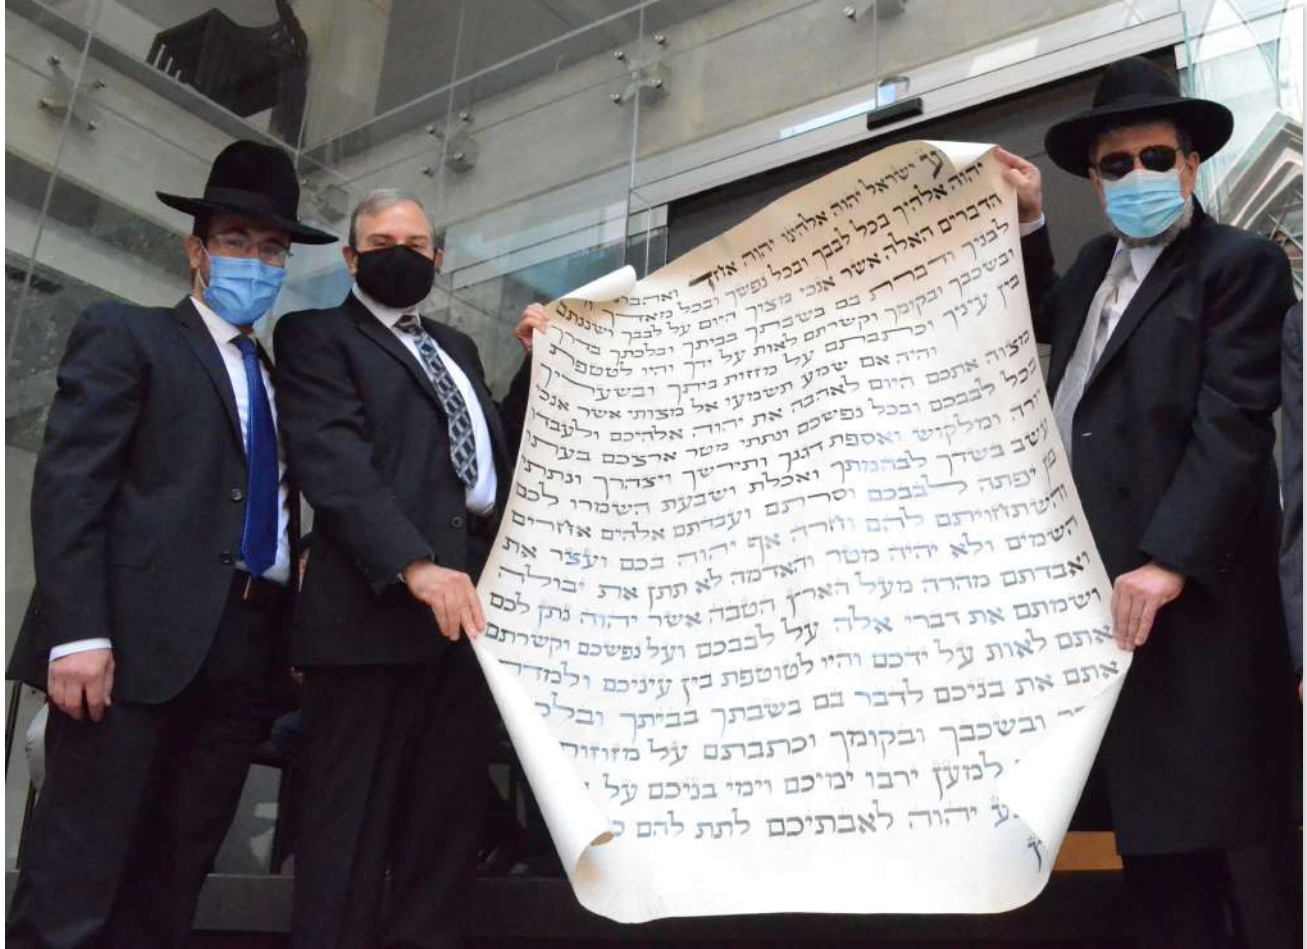 ישראל יהוה אלהינו יהוה אחד ואהבת
יהוה אלהיך בכל לבבך ובכל נפשך ובכל מאדך
הדברים האלה אשר אנכי מצוך היום על לבבך ושננתם
לבניך ודברת בם בשבתך בביתך ובלכתך בדרך
ובשכבך ובקומך וקשרתם לאות על ידך והיו לטטפת
בין עיניך וכתבתם על מזזות ביתך ובשעריך
והיה אם שמע תשמעו אל מצותי אשר אנכי
מצוה אתכם היום לאהבה את יהוה אלהיכם ולעבדו
בכל לבבכם ובכל נפשכם ונתתי מטר ארצכם בעתו
יורה ומלקוש ואספת דגנך ותירשך ויצהרך ונתתי
עשב בשדך לבהמתך ואכלת ושבעת השמרו לכם
פן יפתה לבבכם וסרתם ועבדתם אלהים אחרים
והשתחויתם להם וחרה אף יהוה בכם ועצר את
השמים ולא יהיה מטר והאדמה לא תתן את יבולה
ואבדתם מהרה מעל הארץ הטבה אשר יהוה נתן לכם
ושמתם את דברי אלה על לבבכם ועל נפשכם וקשרתם
אתם לאות על ידכם והיו לטוטפת בין עיניכם ולמדתם
אתם את בניכם לדבר בם בשבתך בביתך ובלכ
ובשכבך ובקומך וכתבתם על מזוזות
למען ירבו ימיכם וימי בניכם על
יהוה לאבתיכם לתת להם